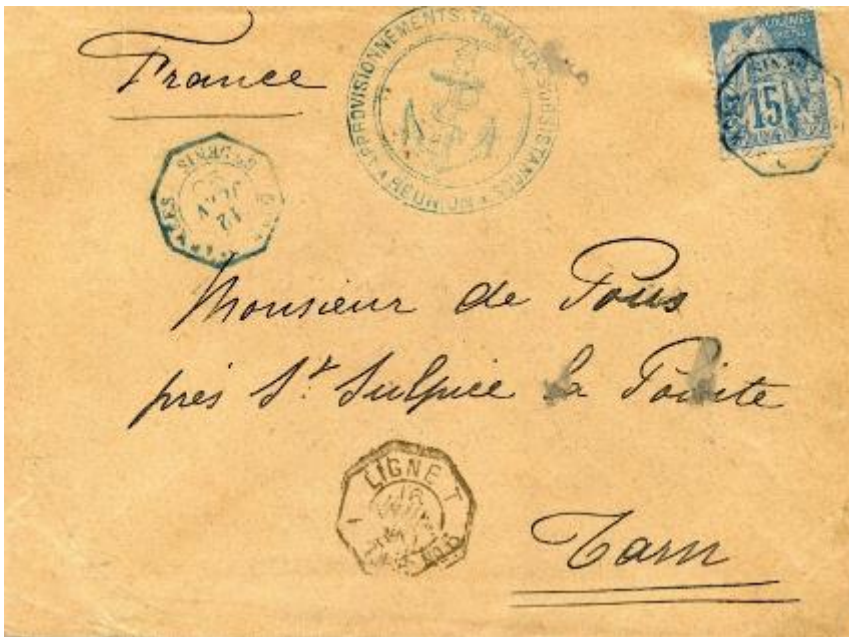 France
APPROVISIONNEMENTS. TRAVAUX. SUBSISTANCES
REUNION
COLONIES
15
ST DENIS
12
Monsieur de Pous
près St. Sulpice la Pointe
LIGNE T
16
Tarn